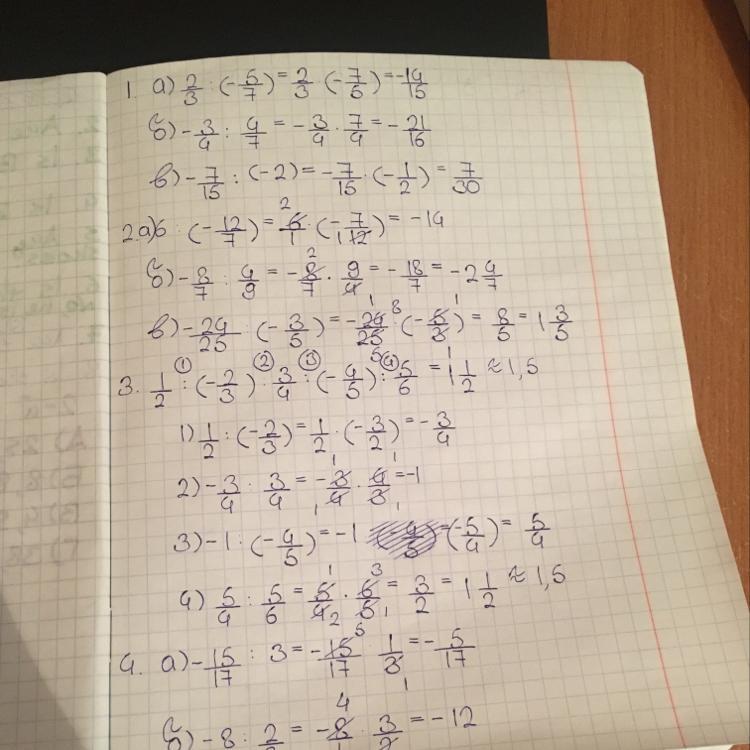 1. а) 2/3 : (-5/7) = 2/3 · (-7/5) = -14/15
б) -3/4 : 4/7 = -3/4 · 7/4 = -21/16
в) -7/15 : (-2) = -7/15 · (-1/2) = 7/30
2. а) 6 : (-12/7) = 6/1 · (-7/12) = -14
б) -8/7 : 4/9 = -8/7 · 9/4 = -18/7 = -2 4/7
в) -24/25 : (-3/5) = -24/25 · (-5/3) = 8/5 = 1 3/5
3. 1/2 : (-2/3) : 3/4 : (-4/5) : 5/6 = 1 1/2 ≈ 1,5
1) 1/2 : (-2/3) = 1/2 · (-3/2) = -3/4
2) -3/4 : 3/4 = -3/4 · 4/3 = -1
3) -1 : (-4/5) = -1 · (-5/4) = 5/4
4) 5/4 : 5/6 = 5/4 · 6/5 = 3/2 = 1 1/2 ≈ 1,5
4. а) -15/17 : 3 = -15/17 · 1/3 = -5/17
б) -8 : 2/3 = -8/1 · 3/2 = -12